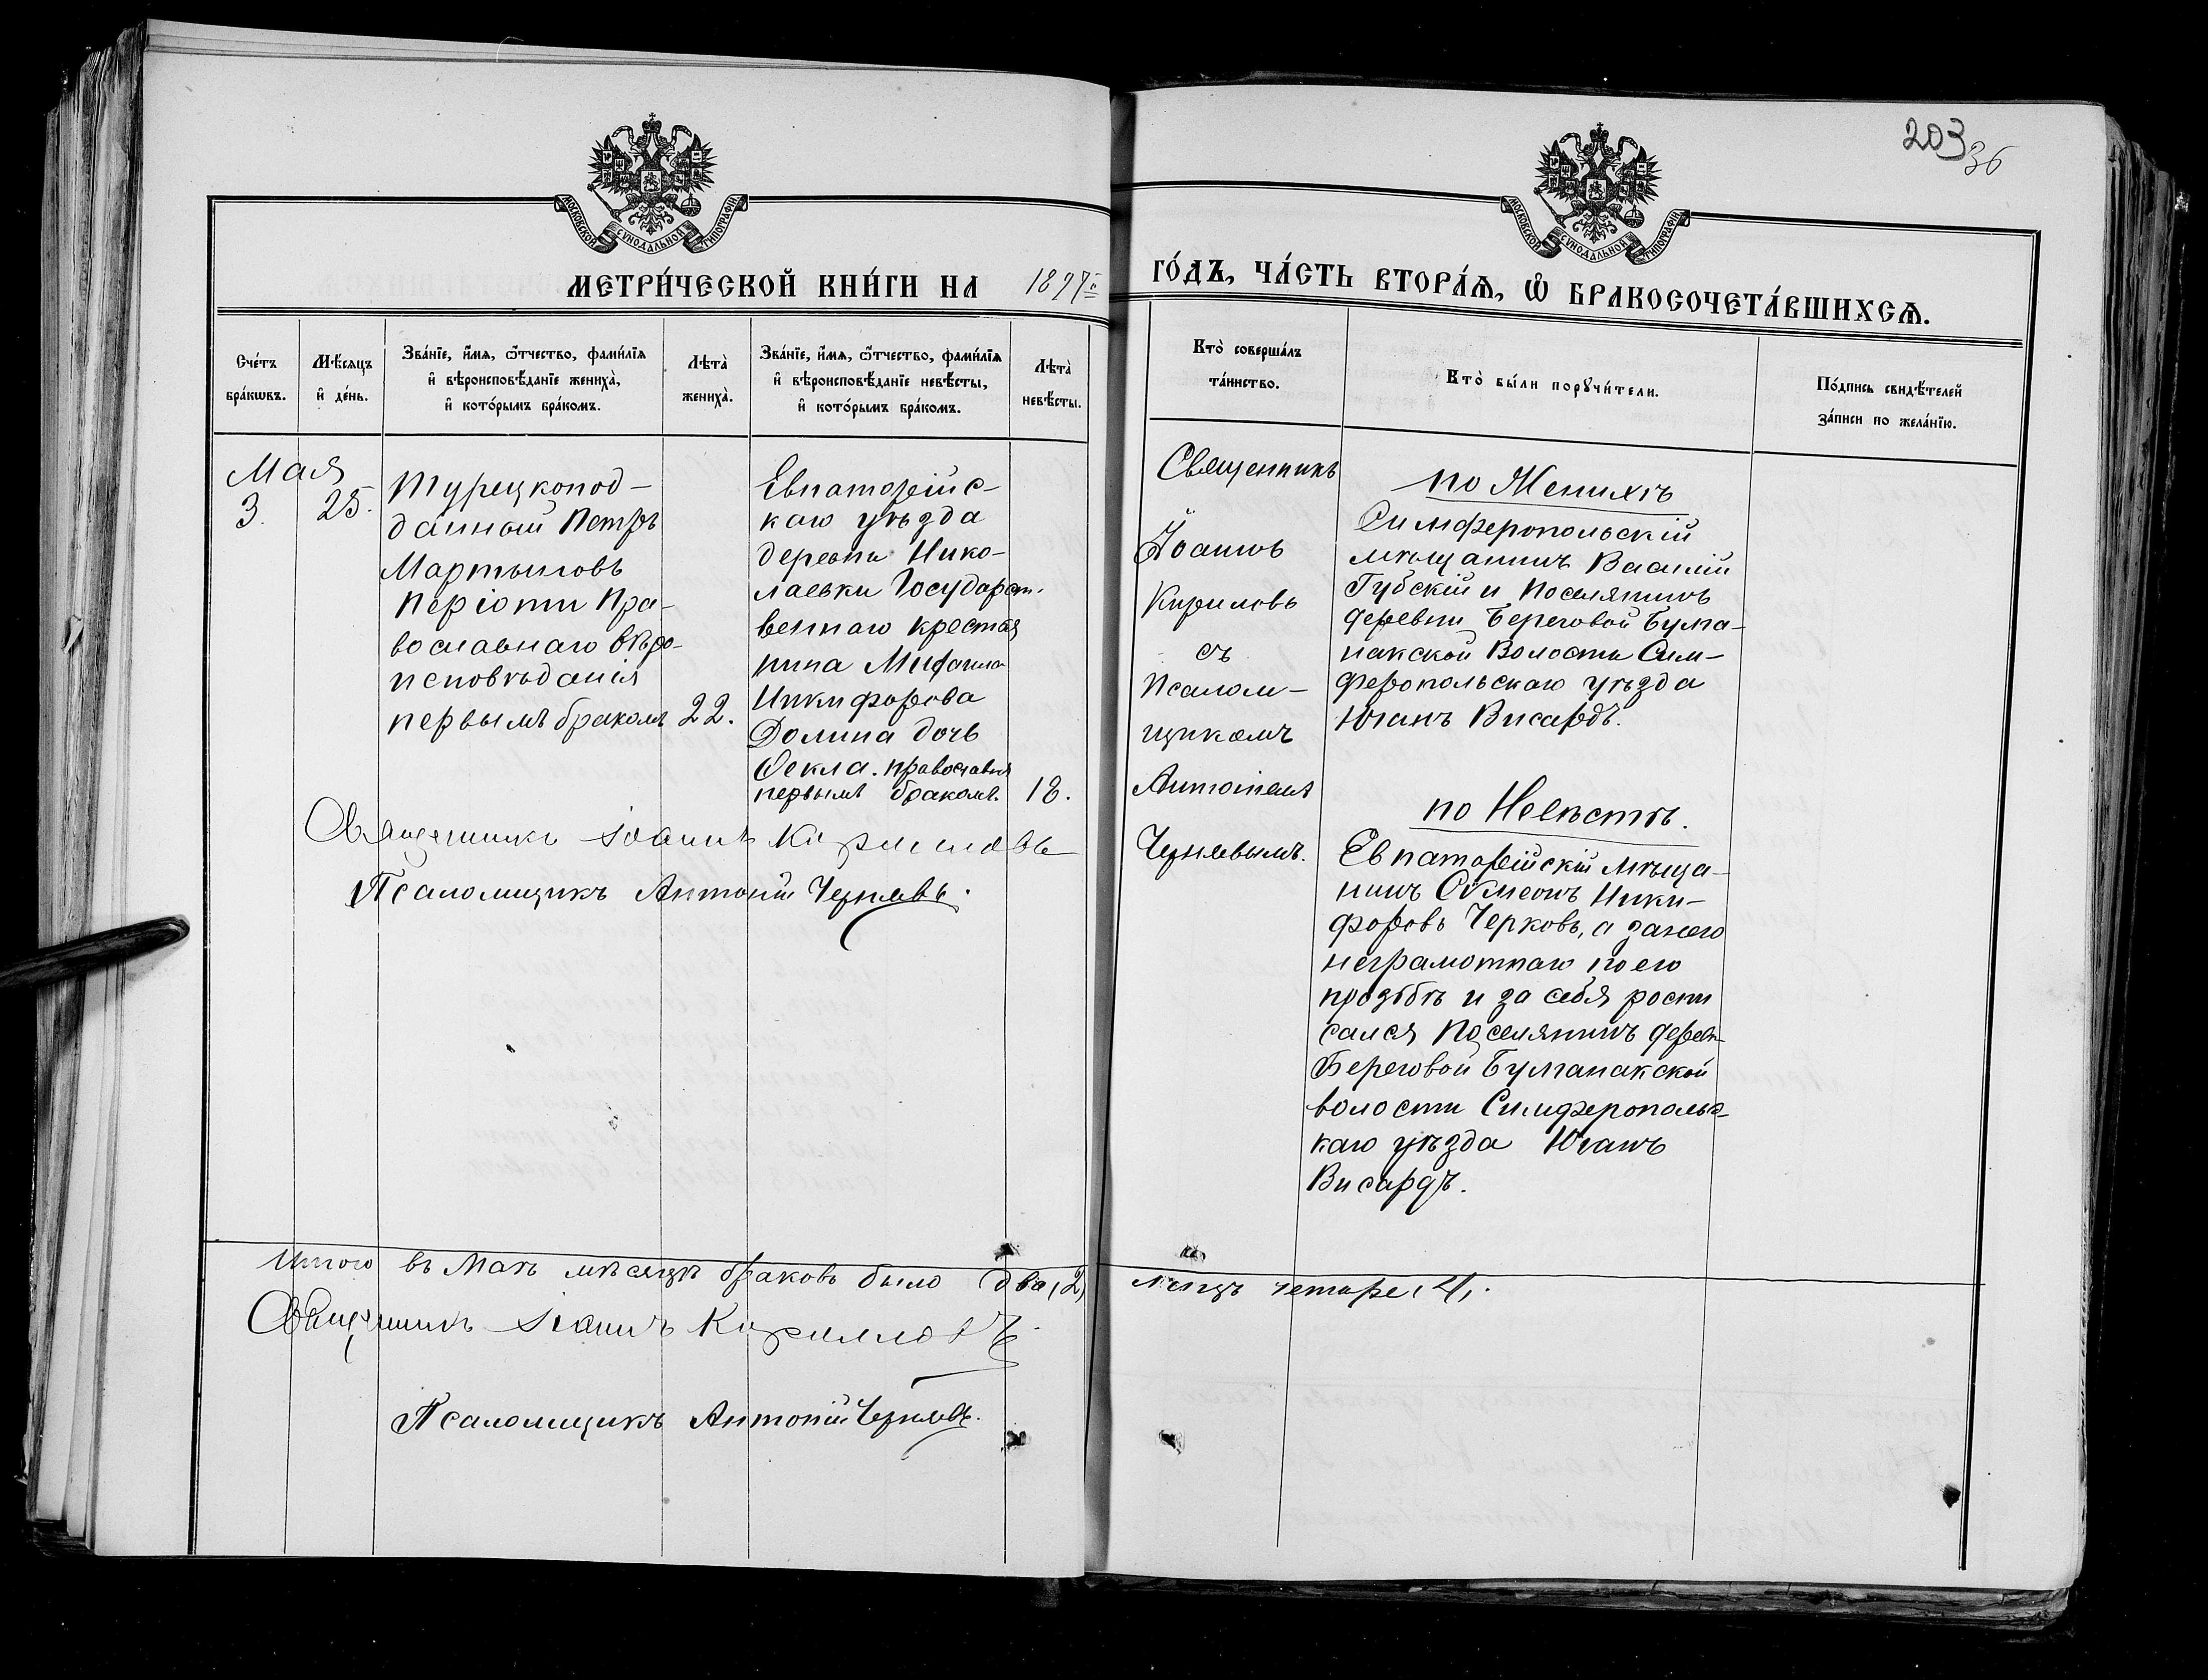 203
36
МОСКОВСКОЙ СѴНОДАЛЬНОЙ ТИПОГРАФІИ
МОСКОВСКОЙ СѴНОДАЛЬНОЙ ТИПОГРАФІИ
МЕТРИ́ЧЕСКОЙ КНИ́ГИ НА 1897й ГО́ДЪ, ЧА́СТЬ ВТОРА́Ѧ, Ѽ БРАКОСОЧЕТА́ВШИХСѦ.
Сче́тъ
бра́кѡвъ.
Мѣ́сѧцъ
и҆ де́нь.
Зва́нїе, и҆́мѧ, ѻ҆́тчество, фами́лїѧ
и҆ вѣроисповѣ́данїе жениха̀,
и҆ кото́рымъ бра́комъ.
Лѣта̀
жениха̀.
Зва́нїе, и҆́мѧ, ѻ҆́тчество, фами́лїѧ
и҆ вѣроисповѣ́данїе невѣ́сты,
и҆ кото́рымъ бра́комъ.
Лѣта̀
невѣ́сты.
Кто̀ соверша́лъ
та́инство.
Кто̀ бы́ли порꙋчи́тели.
По́дпись свидѣ́телей
за́писи по жела́нїю.
Мая
3.
25.
Турецкопод-
данный Петръ
Мартыновъ
Періоти Пра-
вославнаго вѣро-
исповѣданія
первымъ бракомъ
22.
Евпаторійс-
каго уѣзда
деревни Нико-
лаевки Государст-
веннаго крестья
нина Михаила
Никифорова
Долина дочь
Фекла. православная
первымъ бракомъ.
18.
Священникъ
Іоаннъ
Кириловъ
съ
Псалом-
щикомъ
Антоніемъ
Чернявымъ.
по Женихѣ
Симферопольскій
мѣщанинъ Василій
Губскій и Поселянинъ
деревни Береговой Булга-
накской Волости Сим-
феропольскаго уѣзда
Юганъ Висардъ.
по Невѣстѣ.
Евпаторійскій мѣща-
нинъ Сѵмеонъ Ники-
форовъ Черковъ, а за него
неграмотнаго по его
прозьбѣ и за себя роспи
сался Поселянинъ дерев-
Береговой Булганакской
волости Симферопольс-
каго уѣзда Юганъ
Висардъ.
Священникъ Іоаннъ Кирилловъ
Псаломщикъ Антоній Чернявъ.
Итого въ Маѣ мѣсяцѣ браковъ было два (2)
четыре (4).
Священникъ Іоаннъ Кирилловъ
Псаломщикъ Антоній Чернявъ.